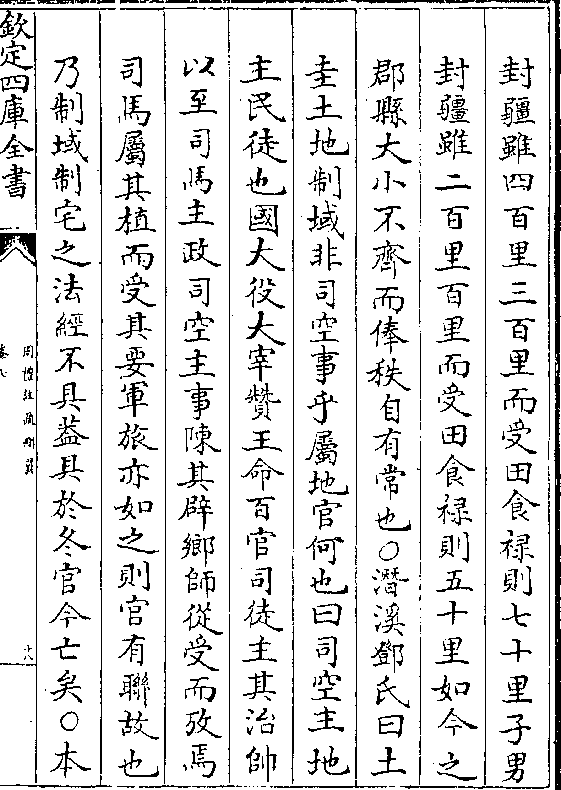 封疆雖四百里三百里而受田食禄則七十里子男
封疆雖二百里百里而受田食禄則五十里如今之
郡縣大小不齊而俸秩自有常也○潛溪鄧氏曰土
圭土地制域非司空事乎屬地官何也曰司空主地
主民徒也國大役大宰贊王命百官司徒主其治帥
以至司馬主政司空主事陳其辟鄉師從受而攷焉
司馬屬其植而受其要軍旅亦如之則官有聯故也
乃制域制宅之法經不具葢具於冬官今亡矣○本
欽定四庫全書